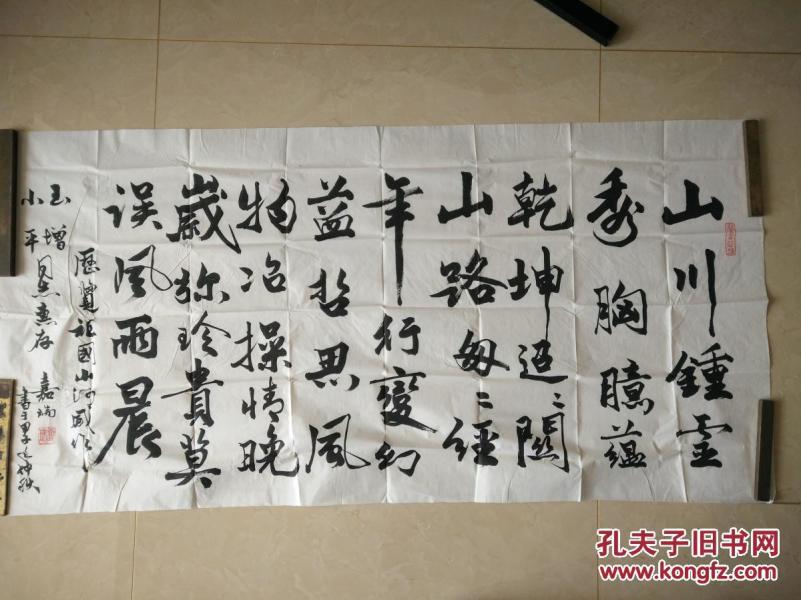 山川鍾灵
秀胸臆蕴
乾坤迢〻關
山路匆〻经
年行變幻
益哲思风
物冶操情晚
歲弥珍貴莫
误风雨晨
歷覽祖國山河感作
玉增
小平同志惠存
嘉瑞
書于甲午仲秋
孔夫子旧书网
www.kongfz.com